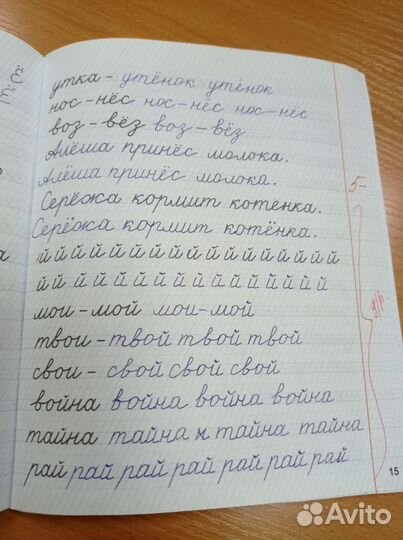 утка – утёнок утёнок
нос – нёс нос – нёс нос – нёс
воз – вёз воз – вёз
Алёша принёс молока.
Алёша принёс молока.
Серёжа кормит котенка.
Серёжа кормит котёнка.
й й й й й й й й й й й й й й й й й
й й й й й й й й й й й й й й й й
мои – мой мои – мой
твои – твой твой твой
свои – свой свой свой
война война война война
тайна тайна тайна тайна
рай рай рай рай рай рай рай
5-
15
Avito